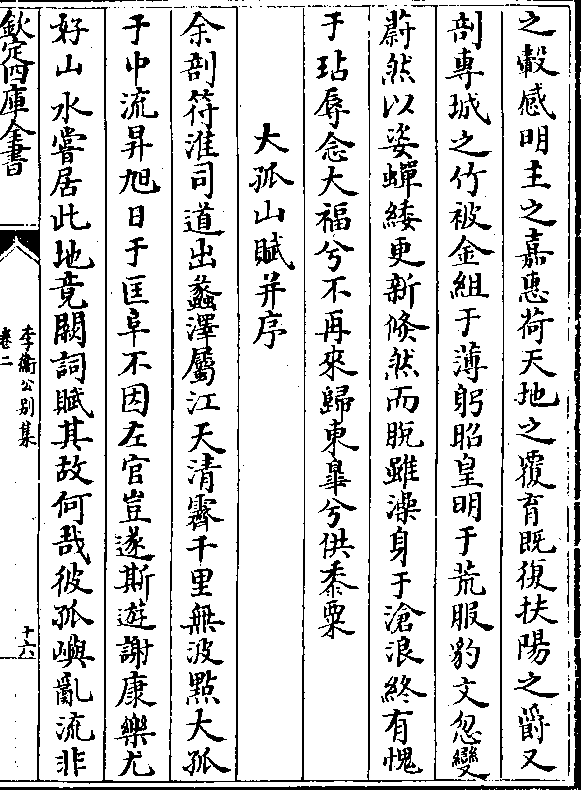 之轂感明主之嘉惠荷天地之覆育既復扶陽之爵又
剖專城之竹被金組于薄躬昭皇明于荒服豹文忽變
蔚然以姿蟬緌更新倐然而脫雖澡身于滄浪終有愧
于玷辱念大福兮不再來歸東臯兮供黍粟
大孤山賦并序
余剖符淮司道出蠡澤屬江天清霽千里無波點大孤
于中流昇旭日于匡阜不因左官豈遂斯遊謝康樂尤
好山水嘗居此地竟闕詞賦其故何哉彼孤嶼亂流非
欽定四庫全書
李衛公别集
卷二
十六